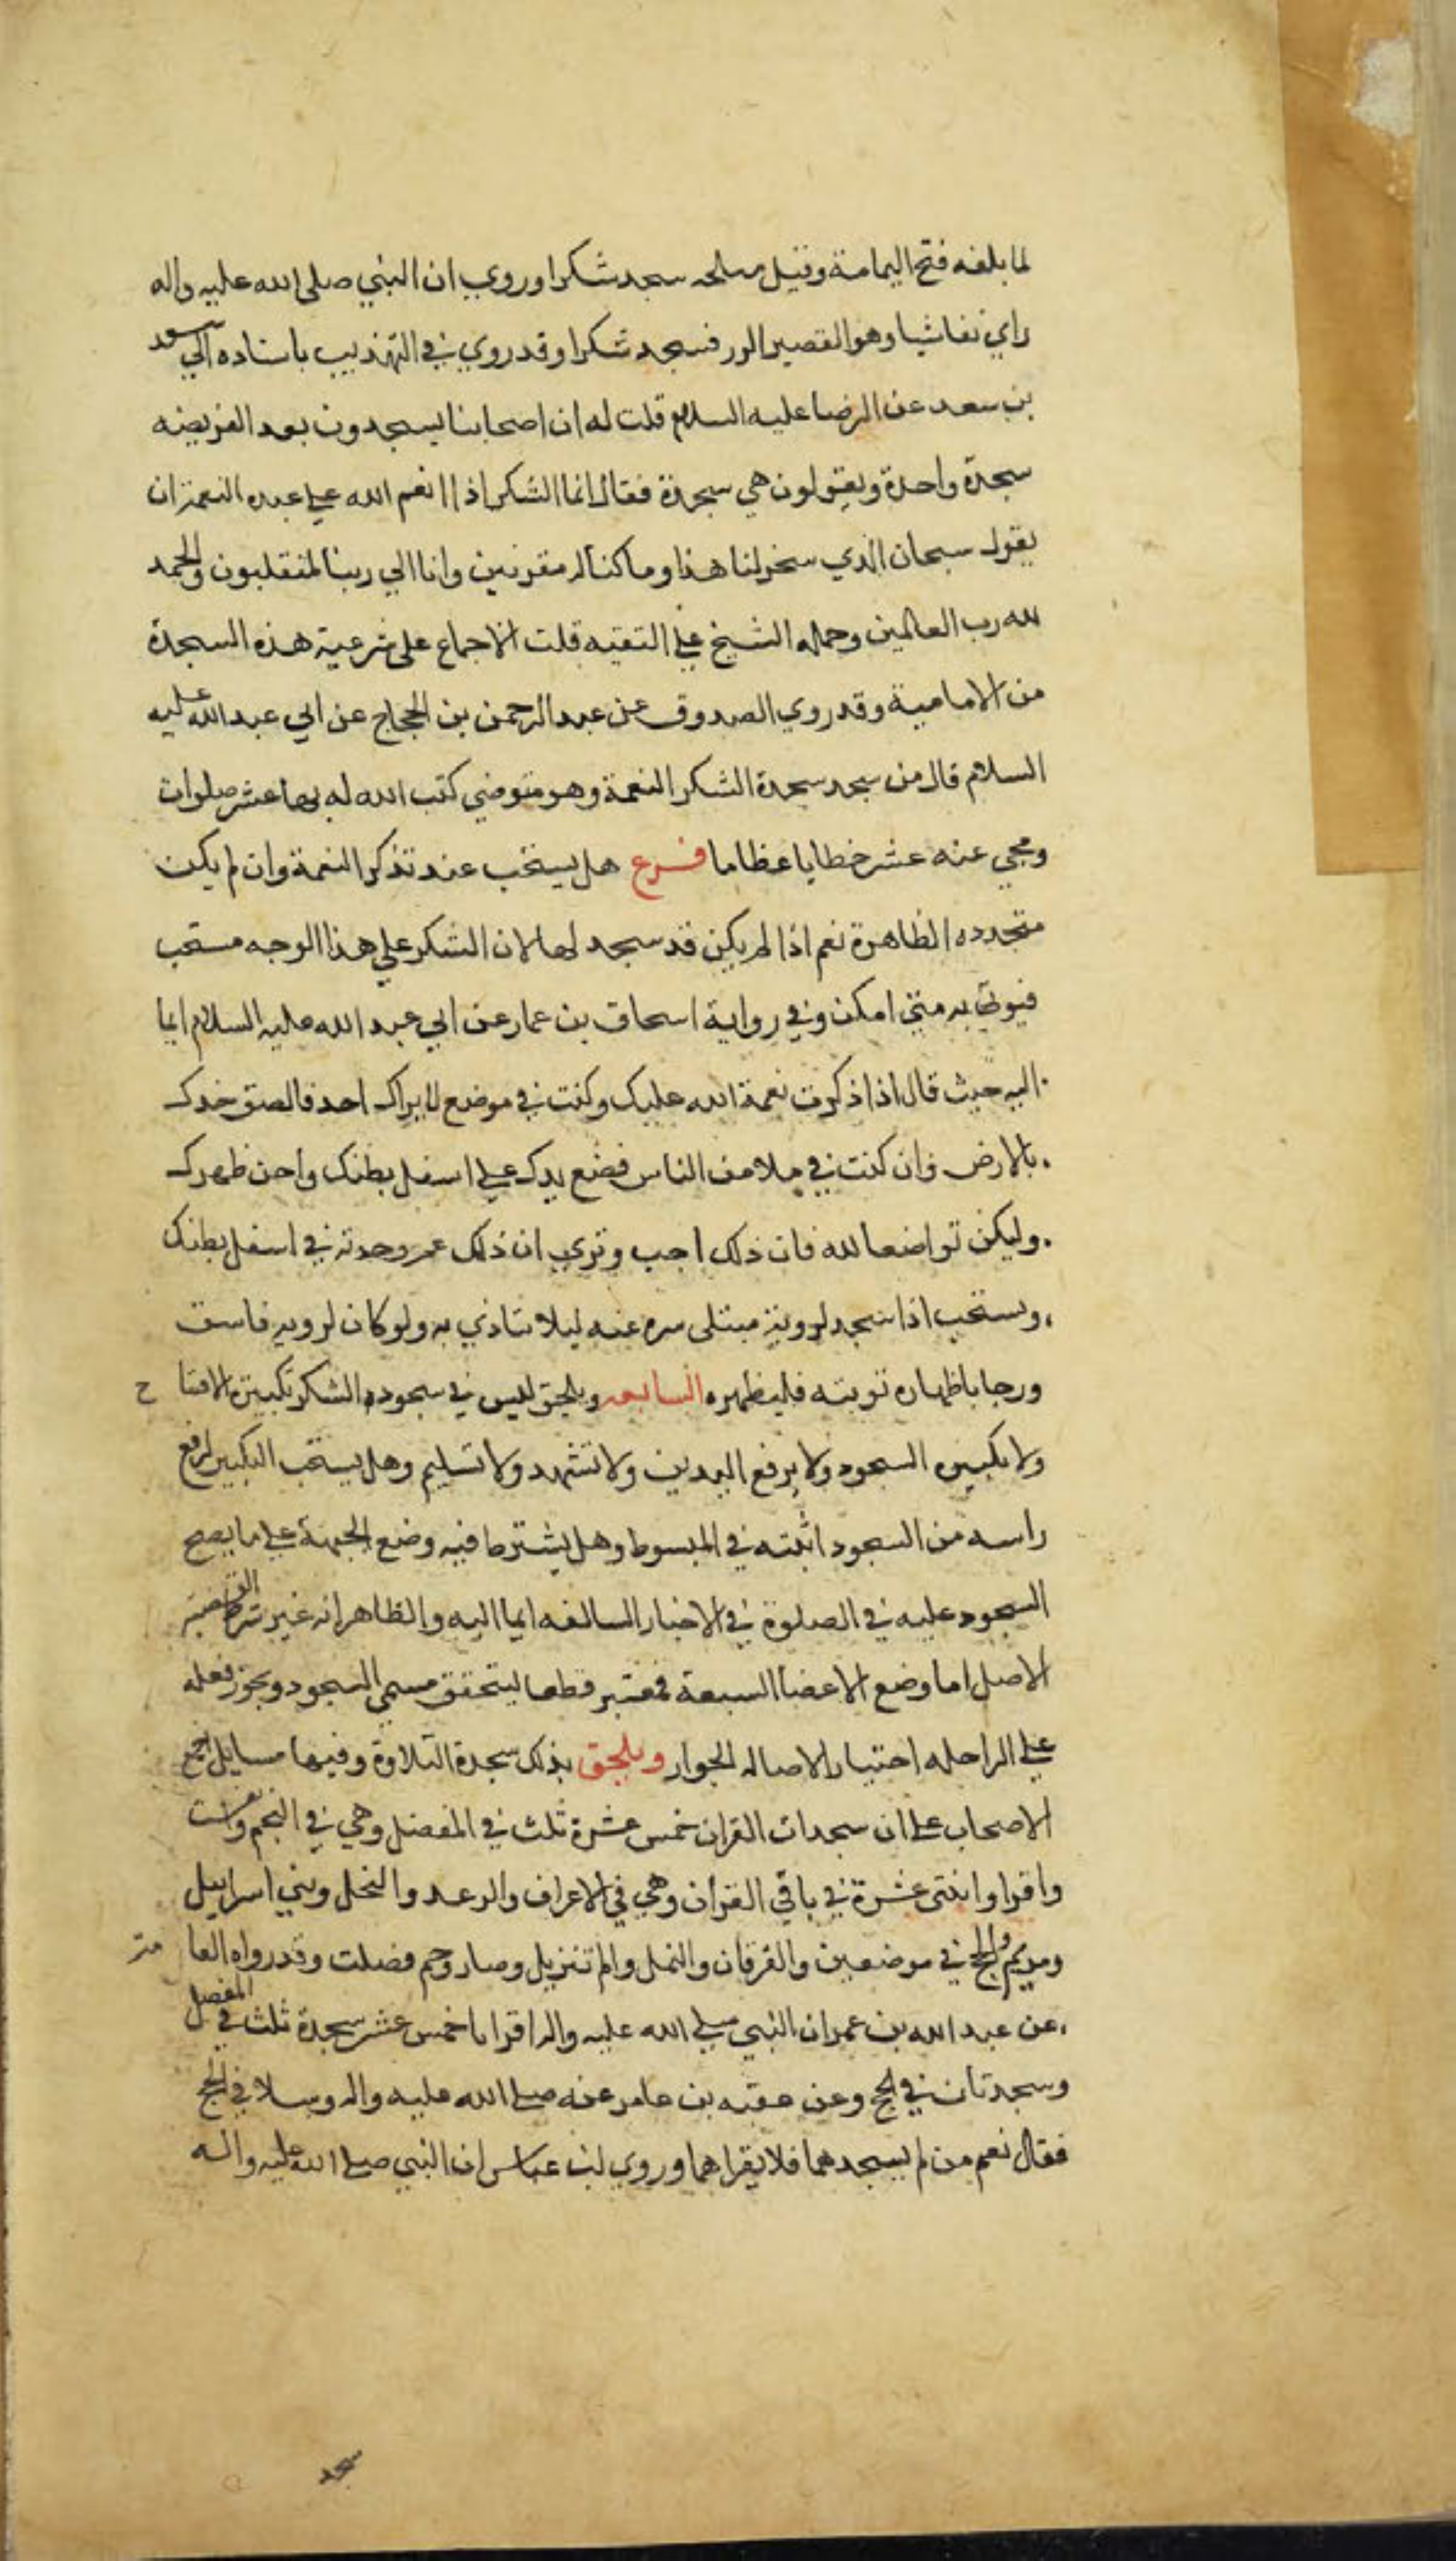 لما بلغه فتح اليمامة وقتيل مسلحه سجد شكرا وروي ان النبي صلى الله عليه واله
راي نغاشيا وهو القصير الزر فسجد شكرا وقد روي في التهذيب باسناده الي سعد
بن سعد عن الرضا عليه السلام قلت له ان اصحابنا يسجدون بعد الفريضه
سجدة واحدة ويقولون هي سجدة فقال انما الشكر اذا انعم الله علي عبده النعمة ان
يقول سبحان الذي سخر لنا هذا وما كنا له مقرنين وانا الي ربنا لمنقلبون والحمد
لله رب العالمين وحمله الشيخ علي التقيه قلت الاجماع على شرعية هذه السجدة
من الامامية وقد روي الصدوق عن عبد الرحمن بن الحجاج عن ابي عبد الله عليه
السلام قال من سجد سجدة الشكر النعمة وهو متوضي كتب الله له بها عشر صلوات
ومحي عنه عشر خطايا عظاما فرع هل يستحب عند تذكر النعمة وان لم يكن
متجدده الظاهرة نعم اذا لم يكن قد سجد لها لان الشكر علي هذا الوجه مستحب
فيوتي به متي امكن وفي رواية اسحاق بن عمار عن ابي عبد الله عليه السلام ايما
اليه حيث قال اذا ذكرت نعمة الله عليك وكنت في موضع لا يراك احد فالصق خدك
بالارض وان كنت في ملا من الناس فضع يدك علي اسفل بطنك واحن ظهرك
وليكن تواضعا لله فان ذلك احب وتري ان ذلك غمز وجدته في اسفل بطنك
ويستحب اذا سجد لروية مبتلى سره عنه ليلا يتاذي به ولو كان لرويه فاسق
ورجا باظهاره توبته فليظهره السابعه ويلحق ليس في سجوده الشكر تكبيرة الافتاح
ولا تكبيره السجود ولا يرفع اليدين ولا تشهد ولا تسليم وهل يستحب التكبير لرفع
راسه من السجود اثبته في المبسوط وهل يشترط فيه وضع الجبهة علي ما يصح
السجود عليه في الصلوة في الاخبار السالفه ايما اليه والظاهر انه غير شرط
الاصل اما وضع الاعضا السبعة فمعتبر قطعا ليتحقق مسمي السجود ويجوز فعله
علي الراحله اختيارا لاصاله الجواز ويلحق بذلك سجدة التلاوة وفيها مسايل اجمع
الاصحاب علي ان سجدات القران خمس عشرة ثلث في المفصل وهي في النجم
واقرا واثنتى عشرة في باقي القران وهي في الاعراف والرعد والنحل وبني اسراييل
ومريم والحج في موضعين والفرقان والنمل والم تنزيل وصاد وحم فصلت وقد رواه العامة
عن عبد الله بن عمر ان النبي صلي الله عليه واله اقراه خمس عشر سجدة ثلث في المفصل
وسجدتان في الحج وعن عقبه بن عامر عنه صلي الله عليه واله وسلا في الحج
فقال نعم من لم يسجدهما فلا يقراهما وروي ابن عباس ان النبي صلي الله عليه واله